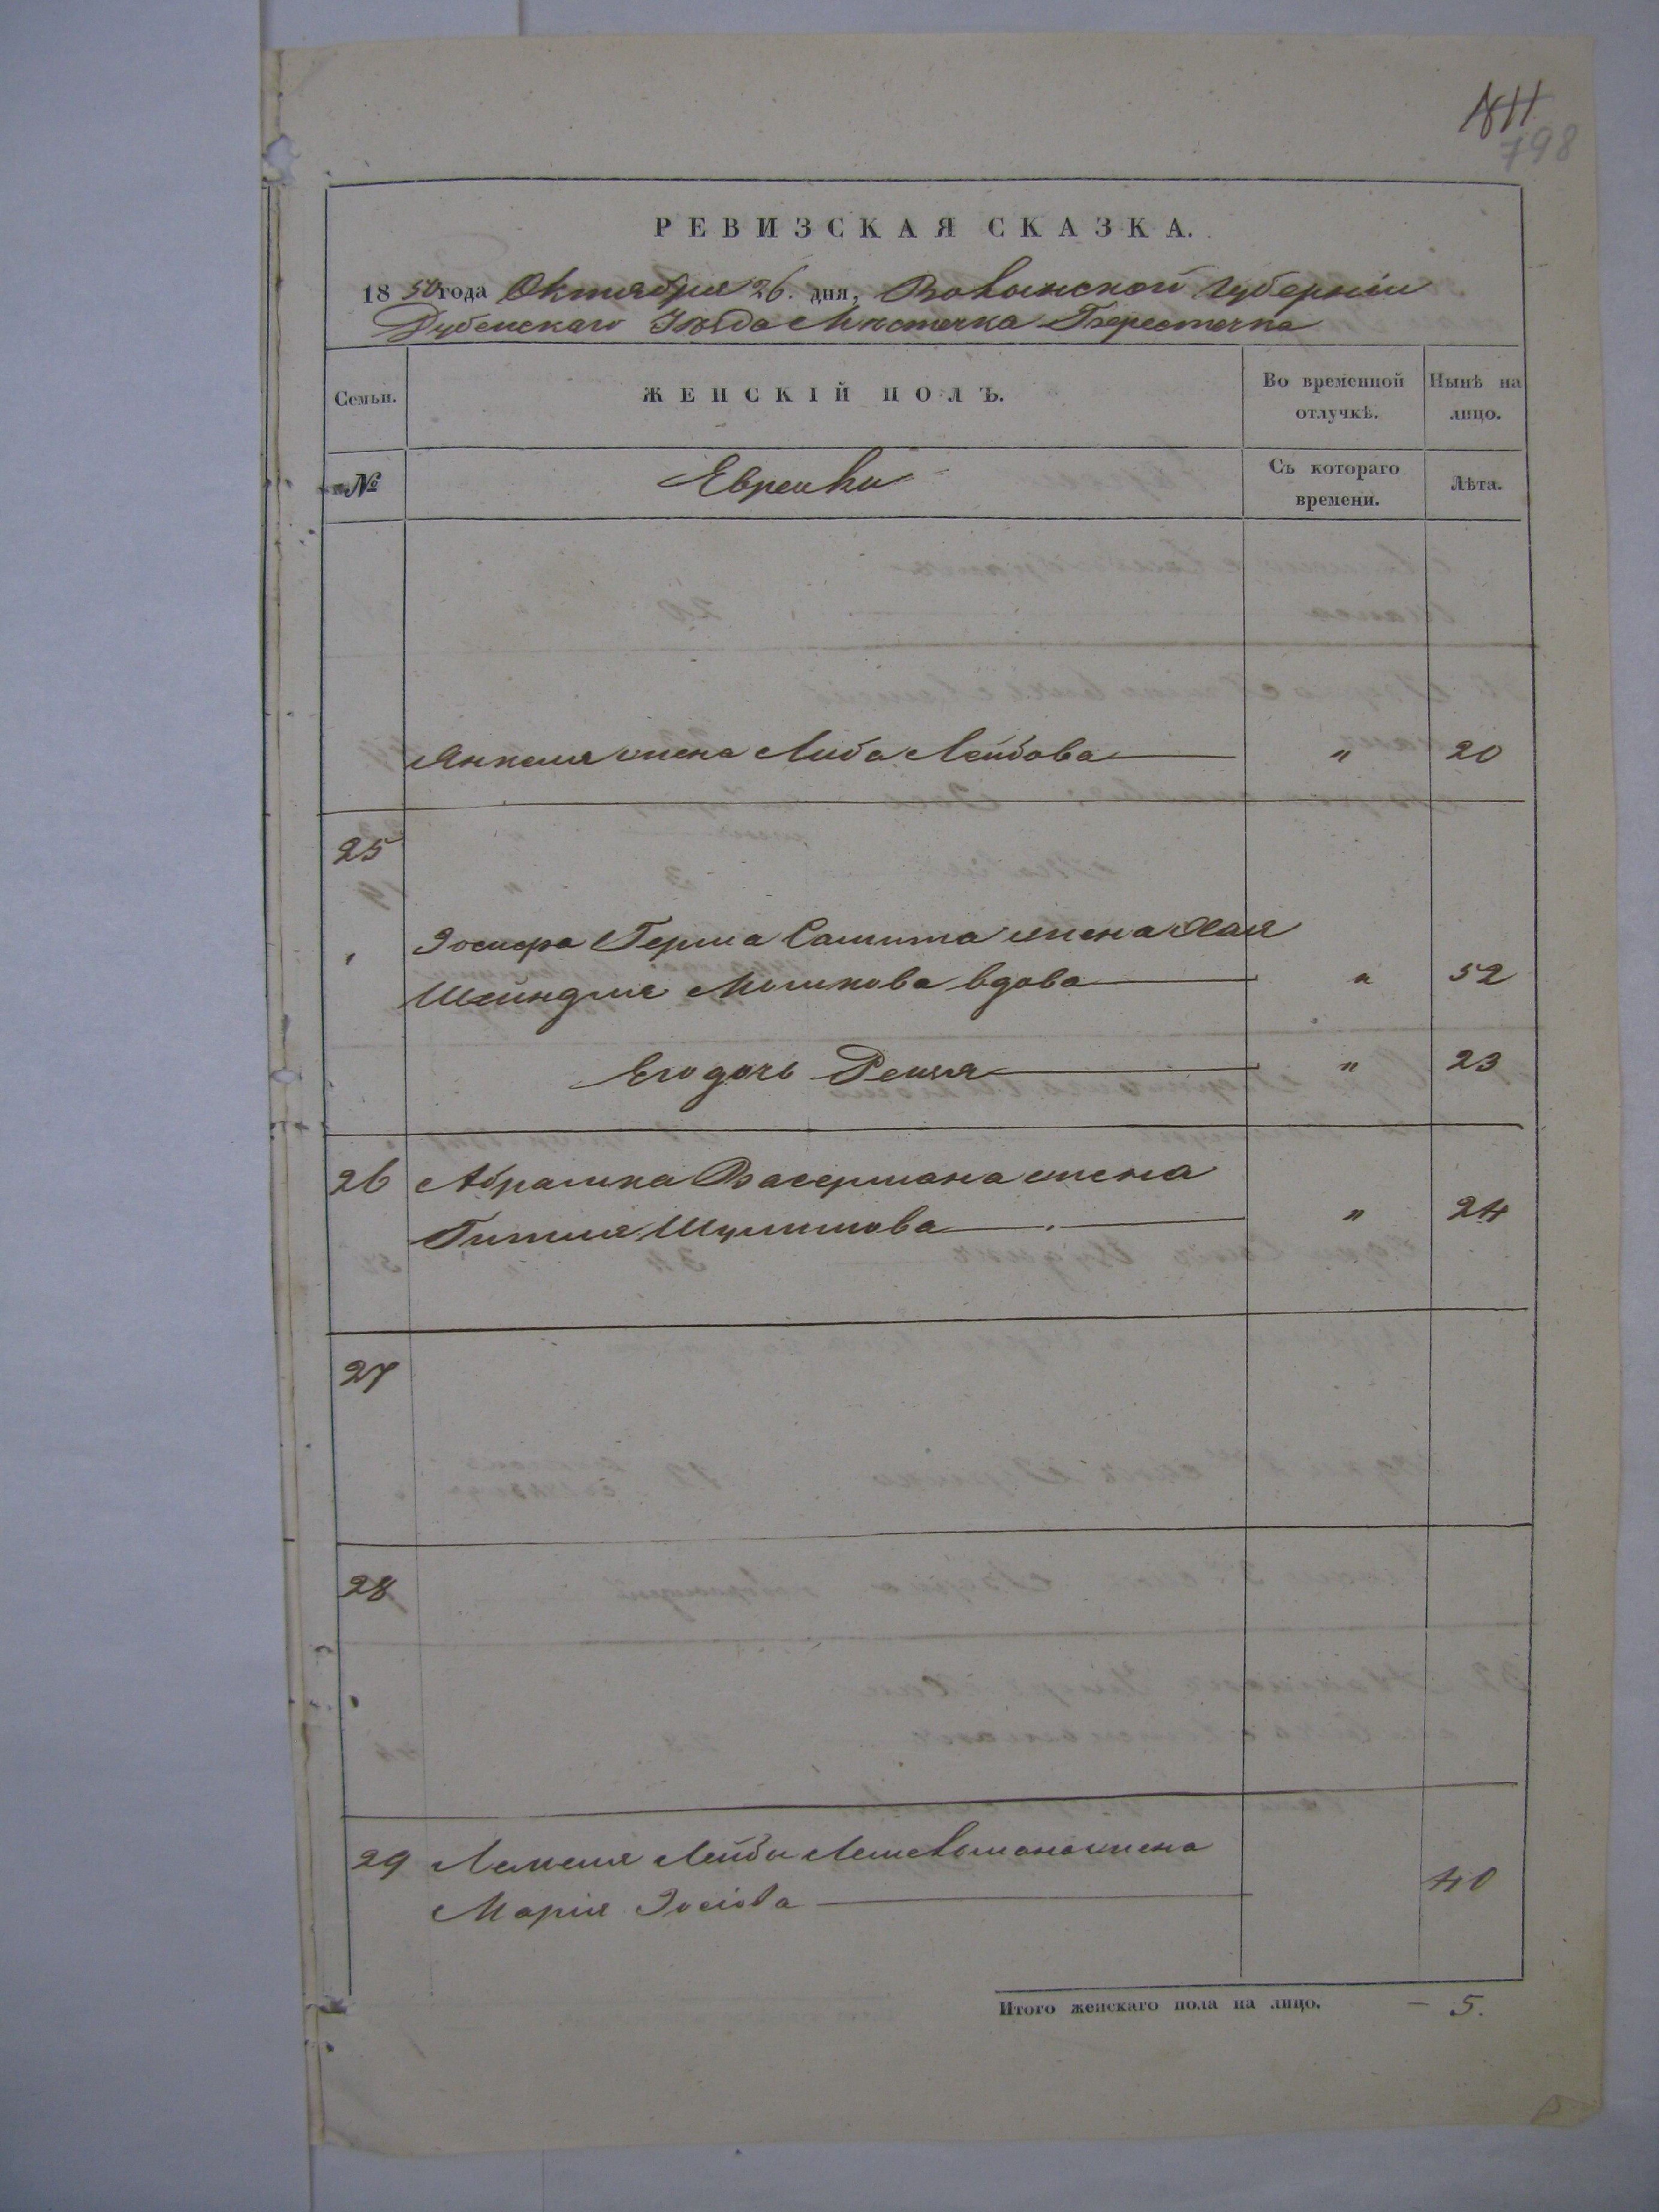 798
РЕВИЗСКАЯ СКАЗКА.
1850 года Октября 26. дня, Волынской Губерніи
Дубенскаго Уѣзда Мѣстечка Берестечка
Семьи.
ЖЕНСКІЙ ПОЛЪ.
Во временной отлучкѣ.
Нынѣ на лицо.
№
Еврейки
Съ котораго времени.
Лѣта.
Янкеля жена Либа Лейбова " 20
25
Іосифа Герша жена Хая
Шейндля Мошкова вдова " 52
Его дочь " 23
26 Абрамка Васермана жена
Гитля Шулимова " 24
27
28
29 Лейбы жена
Марія Іосіова 40
Итого женскаго пола на лицо. — 5.